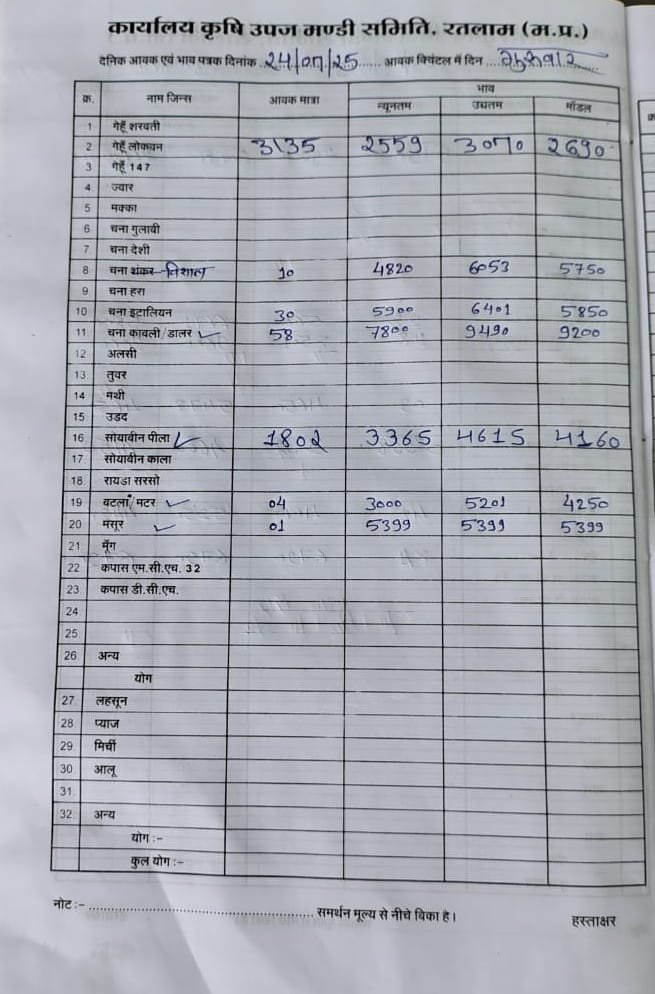 कार्यालय कृषि उपज मण्डी समिति, रतलाम (म.प्र.)
दैनिक आवक एवं भाव पत्रक दिनांक 24/07/25 आवक क्विंटल में दिन गुरुवार
क्र. नाम जिन्स आवक मात्रा भाव
न्यूनतम उच्चतम मॉडल
1 गेहूँ शरवती
2 गेहूँ लोकवन 3135 2559 3070 2690
3 गेहूँ 147
4 ज्वार
5 मक्का
6 चना गुलाबी
7 चना देशी
8 चना शंकर विशाल 10 4820 6053 5750
9 चना हरा
10 चना इटालियन 30 5900 6401 5850
11 चना कावली/डालर ✓ 58 7800 9490 9200
12 अलसी
13 तुवर
14 मैथी
15 उडद
16 सोयाबीन पीला ✓ 1802 3365 4615 4160
17 सोयाबीन काला
18 रायडा सरसो
19 वटला/मटर ✓ 04 3000 5201 4250
20 मसूर ✓ 01 5399 5399 5399
21 मूँग
22 कपास एम.सी.एच. 32
23 कपास डी.सी.एच.
24
25
26 अन्य
योग
27 लहसून
28 प्याज
29 मिर्ची
30 आलू
31
32 अन्य
योग :–
कुल योग :–
नोट :– समर्थन मूल्य से नीचे बिका है।
हस्ताक्षर